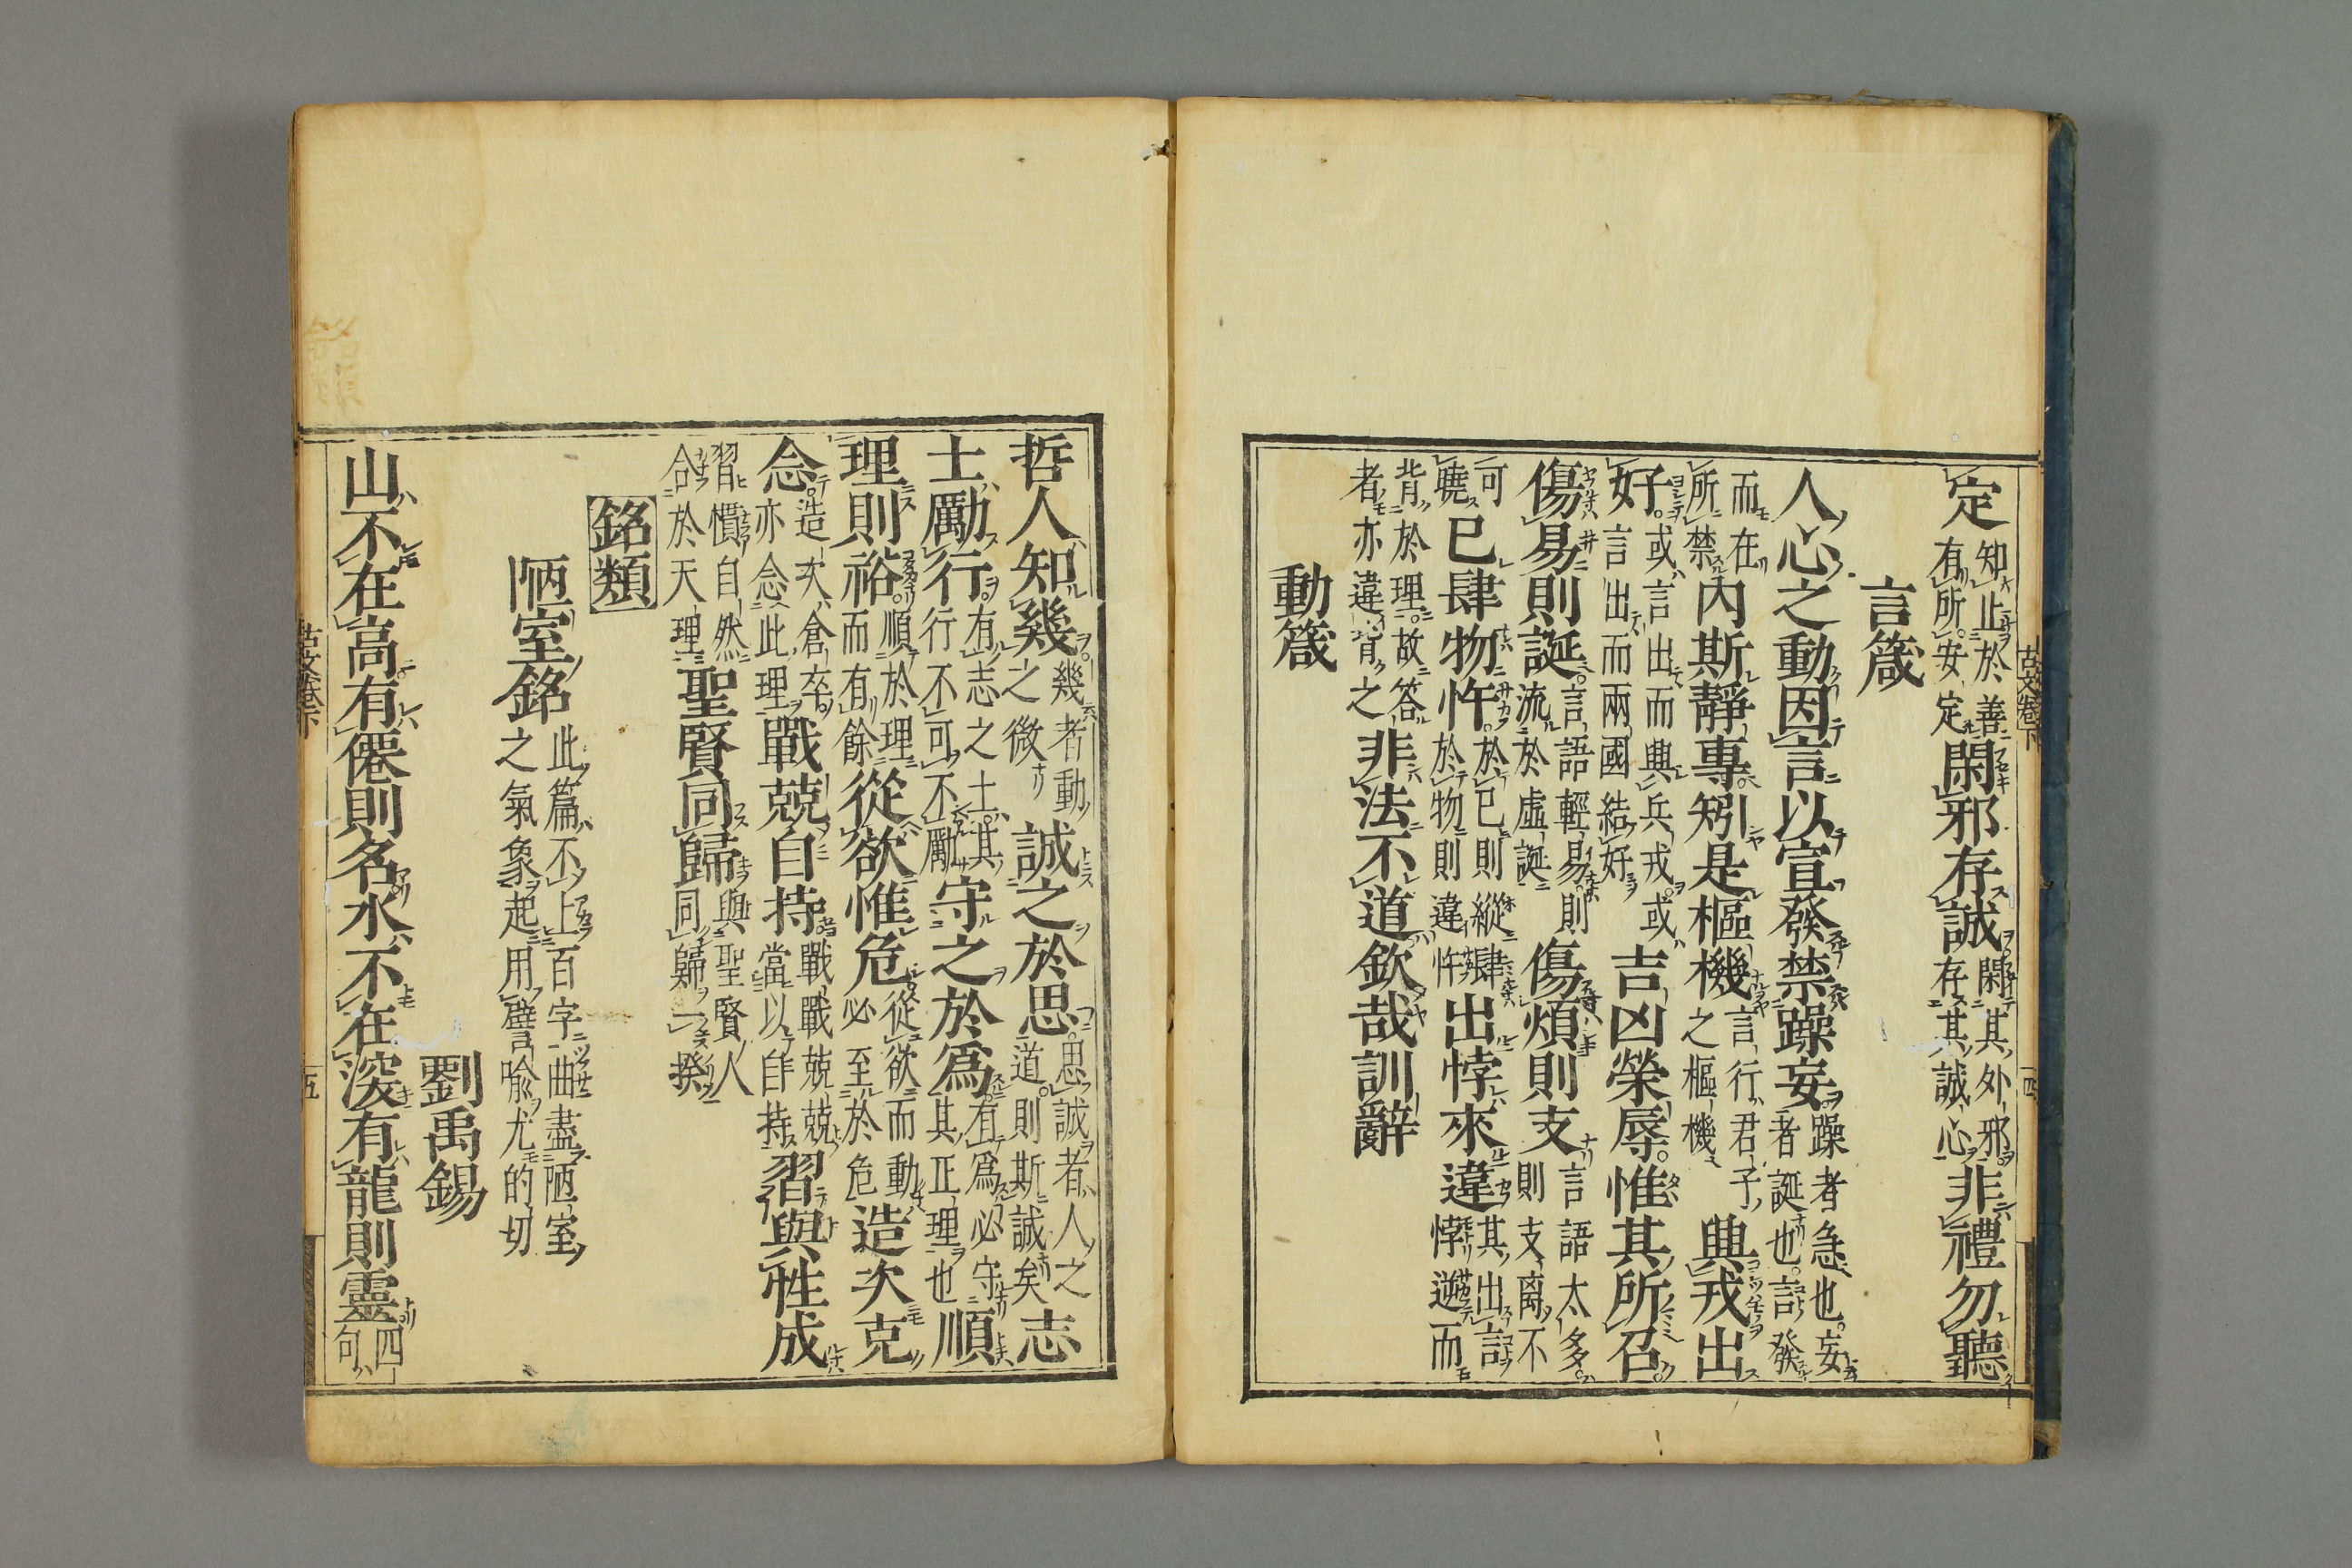 定知止於善有所安定閑邪存誠閑其外邪存其誠心非禮勿聽
言箴
人心之動因言以宣發禁躁妄躁者急也妄者誕也言發
而在所禁內斯靜專矧是樞機言行君子之樞機興戎出
好或言出而興兵戎或言出而兩國結好吉凶榮辱惟其所召
傷易則誕言語輕易則流於虛誕傷煩則支言語太多則支離不
可曉已肆物忤於已則縱肆於物則違忤出悖來違其出言悖遜而
背於理故答者亦違背之非法不道欽哉訓辭
動箴
古文卷下
四
哲人知幾幾者動之微誠之於思思誠者人之道則斯誠矣志
士勵行有志之士其行不可不勵守之於爲有爲必守其正理也順
理則裕順於理而有餘從欲惟危從欲而動必至於危造次克
念造次倉卒亦念此理戰兢自持戰戰兢兢當以自持習與性成
習慣自然合於天理聖賢同歸與聖賢人同歸一揆
銘類
陋室銘此篇不上百字曲盡陋室之氣象起用譬喩尤的切
劉禹錫
山不在高有僊則名水不在深有龍則靈四句
古文卷下
五